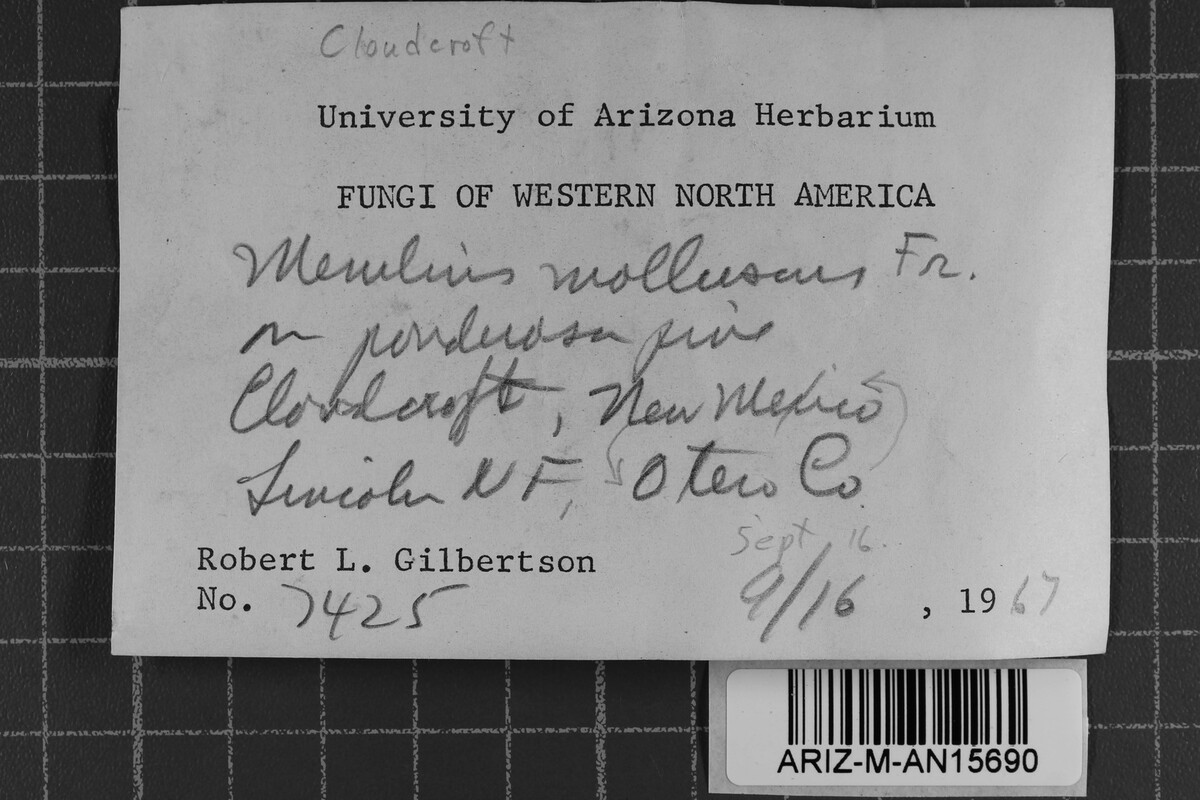 Cloudcroft
University of Arizona Herbarium
FUNGI OF WESTERN NORTH AMERICA
Merulius molluscus Fr.
on ponderosa pine
Cloudcroft, New Mexico
Lincoln NF, Otero Co.
Sept. 16.
Robert L. Gilbertson
No. 7425 9/16, 1967
ARIZ-M-AN15690